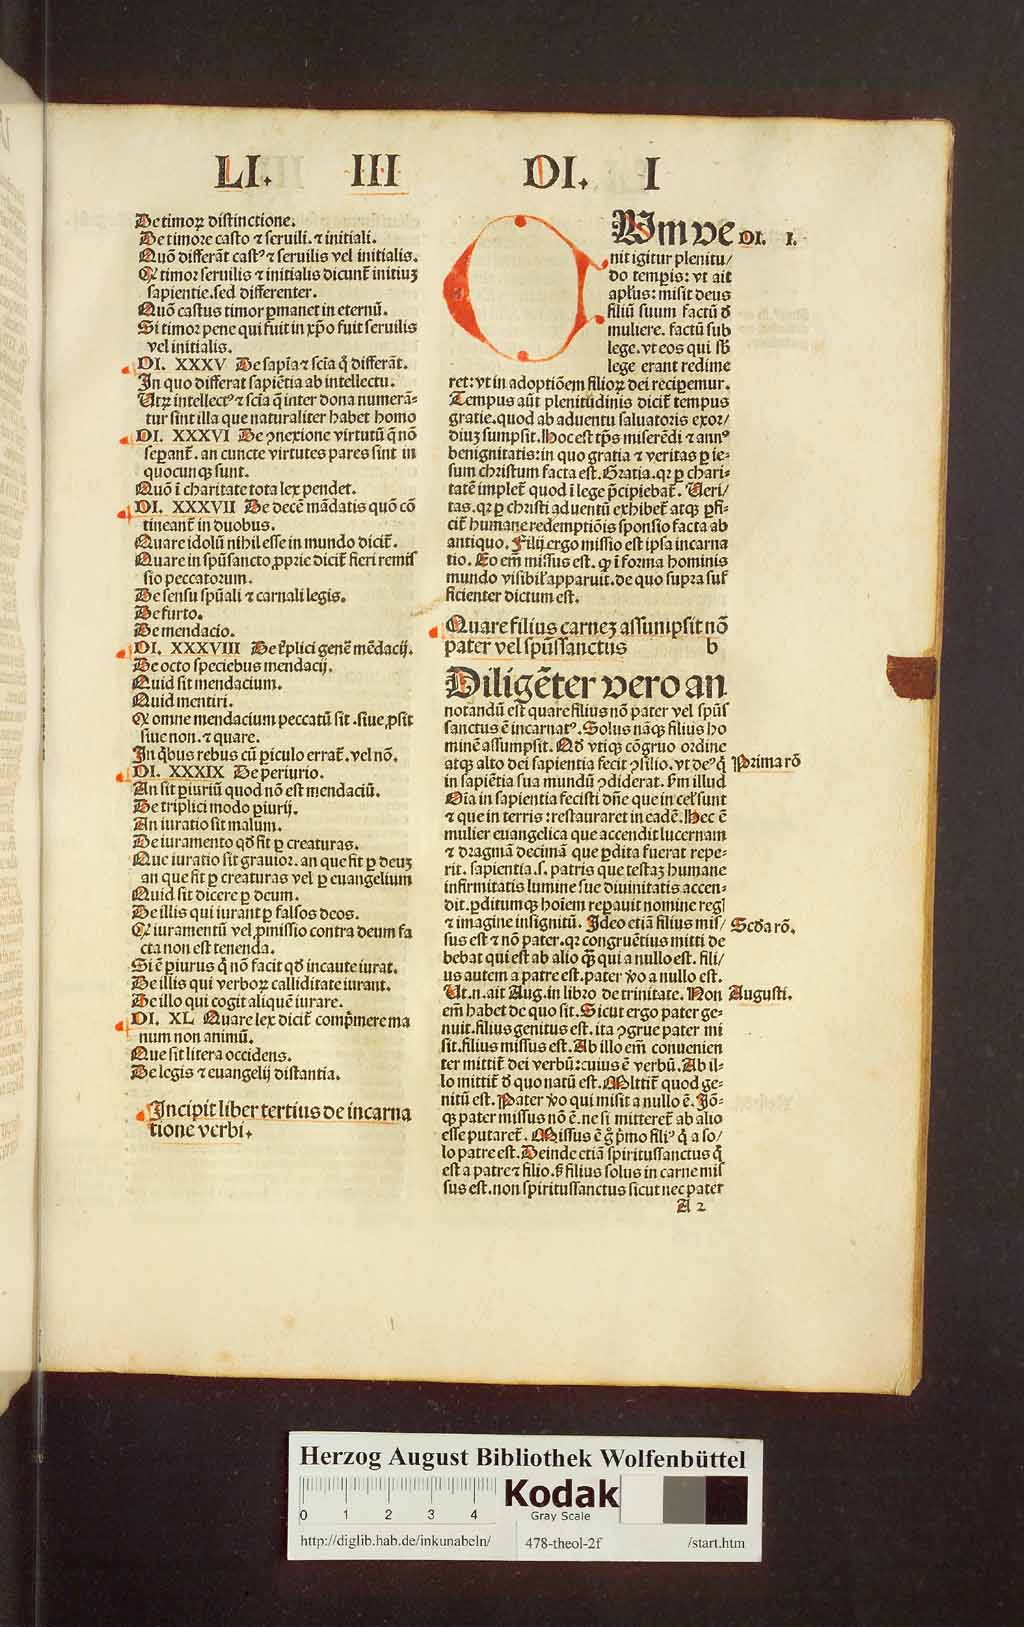 LI. III DI. I
De timorꝝ distinctione.
De timore casto ⁊ seruili. ⁊ initiali.
Quō differāt castꝰ ⁊ seruilis vel initialis.
Q timor seruilis ⁊ initialis dicunt̃ initiuʒ
sapientie. sed differenter.
Quō castus timor ꝑmanet in eternū.
Si timor pene qui fuit in xp̄o fuit seruilis
vel initialis.
DI. XXXV De sapīa ⁊ scīa q̄ differāt.
In quo differat sapiētia ab intellectu.
Utꝝ intellectꝰ ⁊ scīa q̄ inter dona numerā-
tur sint illa que naturaliter habet homo
DI. XXXVI De ꝯnexione virtutū q̄ nō
seꝑant̃. an cuncte virtutes pares sint in
quocunqꝫ sunt.
Quō ī charitate tota lex pendet.
DI. XXXVII De decē mādatis quō cō
tineant̃ in duobus.
Quare idolū nihil esse in mundo dicit̃.
Quare in spūsancto ꝓprie dicit̃ fieri remis
sio peccatorum.
De sensu spūali ⁊ carnali legis.
De furto.
De mendacio.
DI. XXXVIII De tͥplici genē mēdacij.
De octo speciebus mendacij.
Quid sit mendacium.
Quid mentiri.
Q omne mendacium peccatū sit. siue ꝓsit
siue non. ⁊ quare.
In qͥbus rebus cū ꝑiculo errat̃. vel nō.
DI. XXXIX De periurio.
An sit ꝑiuriū quod nō est mendaciū.
De triplici modo ꝑiurij.
An iuratio sit malum.
De iuramento qd̄ fit ꝑ creaturas.
Que iuratio sit grauior. an que fit ꝑ deuʒ
an que fit ꝑ creaturas vel ꝑ euangelium
Quid sit dicere ꝑ deum.
De illis qui iurant ꝑ falsos deos.
Q iuramentū vel ꝓmissio contra deum fa
cta non est tenenda.
Si ē ꝑiurus q̄ nō facit qd̄ incaute iurat.
De illis qui verborꝝ calliditate iurant.
De illo qui cogit aliquē iurare.
DI. XL Quare lex dicit̃ comp̄mere ma
num non animū.
Que sit litera occidens.
De legis ⁊ euangelij distantia.
Incipit liber tertius de incarna
tione verbi.
C
Um ve DI. I.
nit igitur plenitu/
do temꝑis: vt ait
apl̄us: misit deus
filiū suum factū d̄
muliere. factū sub
lege. vt eos qui sb̄
lege erant redime
ret: vt in adoptiōem filioꝝ dei recipemur.
Tempus aūt plenitudinis dicit̃ tempus
gratie. quod ab aduentu saluatoris exor/
diuʒ sumpsit. Hoc est tp̄s miserēdi ⁊ annꝰ
benignitatis: in quo gratia ⁊ veritas ꝑ ie-
sum christum facta est. Gratia. qꝛ ꝑ chari-
tatē implet̃ quod ī lege p̄cipiebat̃. Veri/
tas. qꝛ ꝑ christi aduentū exhibet̃ atqꝫ ꝑfi-
cit̃ humane redemptiōis sponsio facta ab
antiquo. Filij ergo missio est ipsa incarna
tio. Eo em̄ missus est. qꝫ ī forma hominis
mundo visibil̓ apparuit. de quo supra suf
ficienter dictum est.
Quare filius carneʒ assumpsit nō
pater vel spūssanctus b
Diligēter vero an
notandū est quare filius nō pater vel spūs
sanctus ē incarnatꝰ. Solus nāqꝫ filius ho
minē assumpsit. Qd̄ vtiqꝫ cōgruo ordine
atqꝫ alto dei sapientia fecit ꝯsilio. vt deꝰ q̄ Prima rō
in sapiētia sua mundū ꝯdiderat. Fm illud
Oīa in sapientia fecisti dn̄e que in cel̓ sunt
⁊ que in terris: restauraret in eadē. Hec ē
mulier euangelica que accendit lucernam
⁊ dragmā decimā que ꝑdita fuerat repe-
rit. sapientia .s. patris que testaʒ humane
infirmitatis lumine sue diuinitatis accen-
dit. ꝑditumqꝫ hoīem reꝑauit nomine regꝭ
⁊ imagine insignitū. Ideo etiā filius mis/ Scd̄a rō.
sus est ⁊ nō pater. qꝛ congruētius mitti de
bebat qui est ab alio qꝫ̄ qui a nullo est. fili/
us autem a patre est. pater v̄o a nullo est.
Ut .n. ait Aug. in libro de trinitate. Non Augusti.
em̄ habet de quo sit. Sicut ergo pater ge-
nuit. filius genitus est. ita ꝯgrue pater mi
sit. filius missus est. Ab illo em̄ conuenien
ter mittit̃ dei verbū: cuius ē verbū. Ab il-
lo mittit̃ d̄ quo natū est. Mittit̃ quod ge-
nitū est. Pater v̄o qui misit a nullo ē. Iō-
qꝫ pater missus nō ē. ne si mitteret̃ ab alio
esse putaret̃. Missus ē gͦ pͥmo filiꝰ q̄ a so/
lo patre est. Deinde etiā spiritussanctus q̄
est a patre ⁊ filio. s̄ filius solus in carne mis
sus est. non spiritussanctus sicut nec pater
A 2
Herzog August Bibliothek Wolfenbüttel
0 1 2 3 4
Kodak
Gray Scale
http://diglib.hab.de/inkunabeln/ 478-theol-2f /start.htm